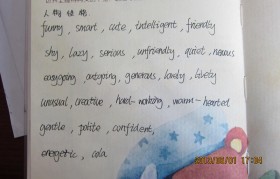 人物性格
funny, smart, cute, intelligent, friendly
shy, lazy, serious, unfriendly, quiet, nervous
easygoing, outgoing, generous, lovely, lively
unusual, creative, hard-working, warm-hearted
gentle, polite, confident,
energetic, cold
2013/08/01 17:04